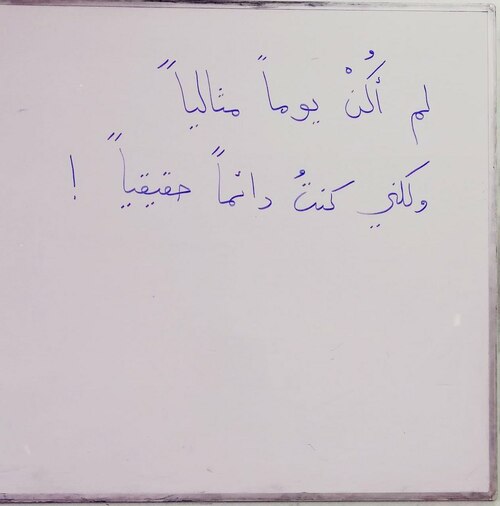 لم أكُنْ يوماً مثالياً
ولكني كنتُ دائماً حقيقياً !